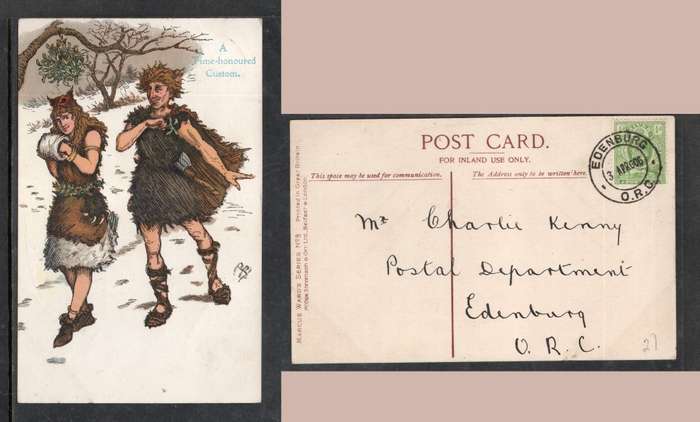 A
Time-honoured
Custom.
POST CARD.
FOR INLAND USE ONLY.
This space may be used for communication.
The Address only to be written here.
EDENBURG
3 APR 06
O.R.C.
Mr Charlie Kenny
Postal Department
Edenburg
O. R. C.
27
MARCUS WARD'S SERIES Nº 9 Printed in Great Britain